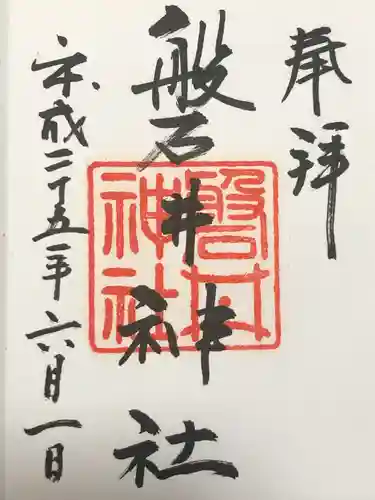 奉拝
磐井神社
磐井神社
平成二十五年六月一日